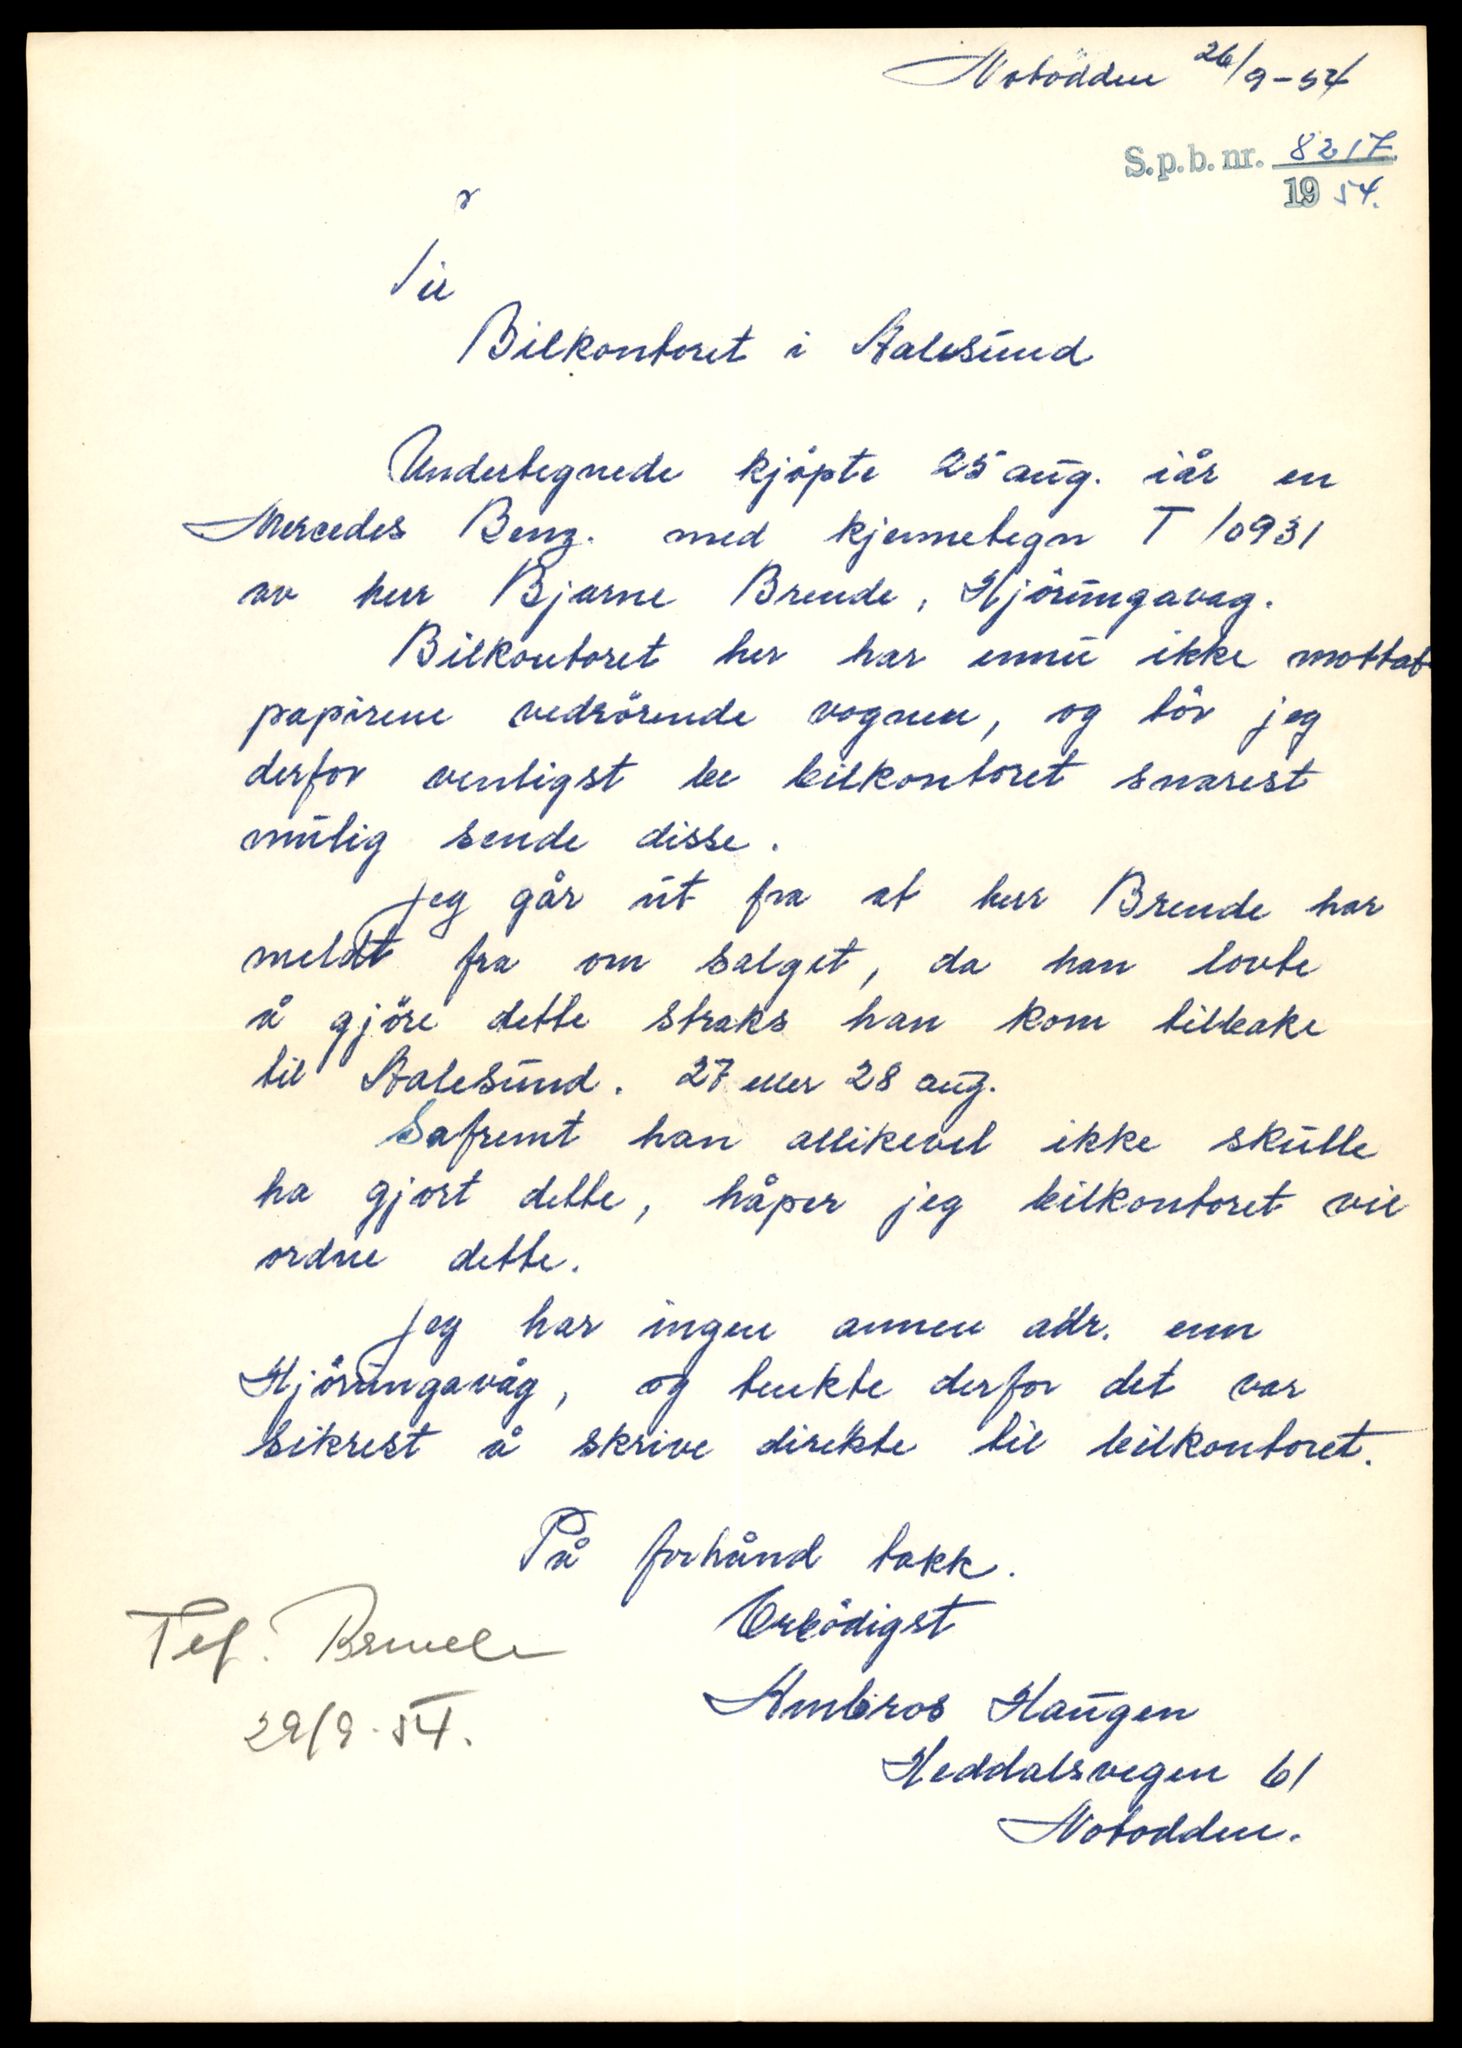 Notodden 26/9-54
S.p.b. nr. 8217
1954.
Til
Bilkontoret i Aalesund
Undertegnede kjöpte 25 aug. iår en
Mercedes Benz. med kjennetegn T 10931
av herr Bjarne Brende, Hjörungavag.
Bilkontoret her har ennu ikke mottat
papirene vedrörende vognen, og tör jeg
derfor venligst be bilkontoret snarest
mulig sende disse.
Jeg går ut fra at herr Brende har
meldt fra om salget, da han lovte
å gjöre dette straks han kom tilbake
til Aalesund. 27 eller 28 aug.
Safremt han allikevel ikke skulle
ha gjort dette, håper jeg bilkontoret vil
ordne dette.
Jeg har ingen annen adr. enn
Hjörungavåg, og tenkte derfor det var
sikrest å skrive direkte til bilkontoret.
På forhånd takk.
Erbödigst
Ambros Haugen
Heddalsvegen 61
Notodden.
Tlf.
29/9-54.